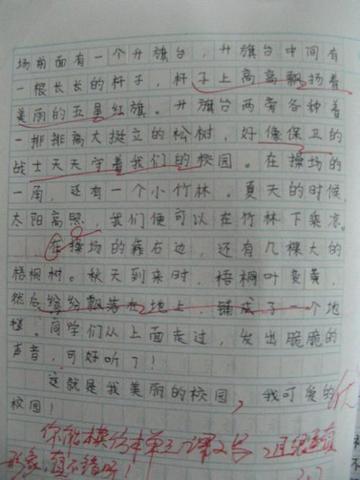 场前面有一个升旗台，升旗台中间有
一根长长的杆子，杆子上高高飘扬着
美丽的五星红旗。升旗台两旁各种着
一排排高大挺立的松树，好像保卫的
战士天天守着我们的校园。在操场的
一角，还有一个小竹林。夏天的时候，
太阳高照，我们便可以在竹林下乘凉。
在操场的靠右边，还有几棵大的
梧桐树。秋天到来时，梧桐叶黄黄，
然后纷纷飘落在地上，铺成了一个地
毯。同学们从上面走过，发出脆脆的
声音，可好听了！
这就是我美丽的校园，我可爱的
校园！
优
你能模仿本单元课文写，且
形象，真不错呀！